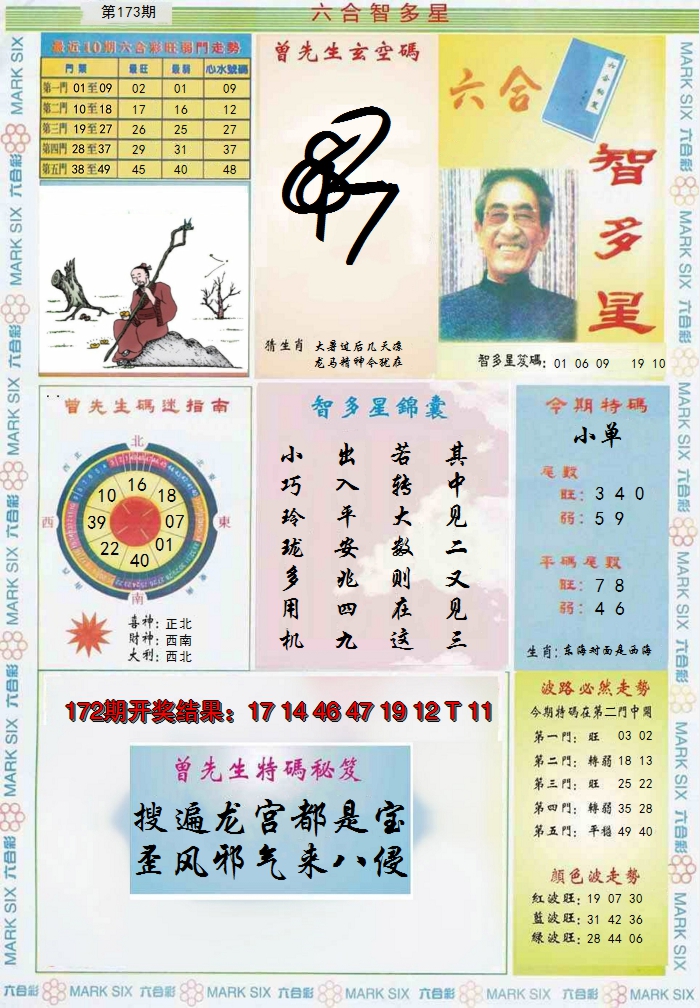 第173期
六合智多星
最近10期六合彩旺弱門走勢
門類 最旺 最弱 心水號碼
第一門 01至09 02 01 09
第二門 10至18 17 16 12
第三門 19至27 26 25 27
第四門 28至37 29 31 37
第五門 38至49 45 40 48
曾先生玄空碼
猜生肖 大暑过后几天凉
龙马精神今犹在
六合
六合秘笈
智多星
智多星笈碼: 01 06 09 19 10
曾先生碼迷指南
北
西北
東北
西
東
西南
東南
南
16
18
07
01
40
22
39
10
喜神: 正北
財神: 西南
大利: 西北
智多星錦囊
小巧玲珑多用机
出入平安兆四九
若转大数则在这
其中见二又见三
今期特碼
小单
尾數
旺: 3 4 0
弱: 5 9
平碼尾數
旺: 7 8
弱: 4 6
生肖: 东海对面是西海
172期开奖结果: 17 14 46 47 19 12 T 11
曾先生特碼秘笈
搜遍龙宫都是宝
歪风邪气来八侵
波路必然走勢
今期特碼在第二門中開
第一門: 旺 03 02
第二門: 轉弱 18 13
第三門: 旺 25 22
第四門: 轉弱 35 28
第五門: 平穩 49 40
顔色波走勢
紅波旺: 19 07 30
藍波旺: 31 42 36
綠波旺: 28 44 06
六合彩 MARK SIX 六合彩 MARK SIX 六合彩 MARK SIX 六合彩 MARK SIX 六合彩 MARK SIX